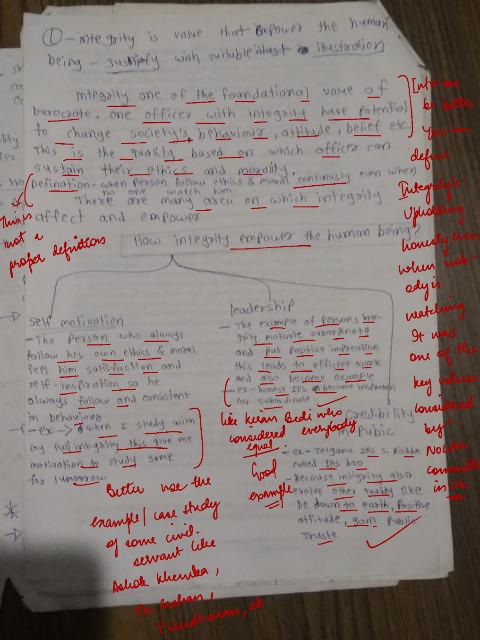 ① - integrity is value that Empower the human
being - Justify with suitable illustration
integrity one of the foundational value of
burocrate. one officer with integrity have potential
to change society's behaviour, attitude, belief etc.
This is the quality based on which officer can
sustain their ethics and morality.
Defination - when Person follow ethics & moral continusly even when
no one watch him.
There are many area on which integrity
affect and empower
This is
not a
proper definition
How integrity empower the human being?
self motivation
- The Person who always
follow his own ethics & moral
feel him satisfaction and
self-inspiration so he
always follow and consistent
in behaviour
- ex → when I study with
my full integrity this give me
motivation to study same
for tumorrow
Better use the
example/case study
of some civil
servant like
Ashok Khemka,
leadership
- The example of Persons inte-
grity motivate subordinate
and put Positive impreation
this leads to efficent work
and also become example
ex - honest IAS become
for subordinate
like Kiran Bedi who
considered everybody
equal.
Good
example
Credibility
in Pubic
- ex - Telgana IAS S.
called IAS bro
- Because integrity also
evolve other quality like
be down to earth, Positive
attitude, gain Public
Truste
be
You
define
Integrity is
Upholding
honesty even
when nob-
ody is
watching
It was
one of the
key values
considered
by
Nolan
committee
in UK